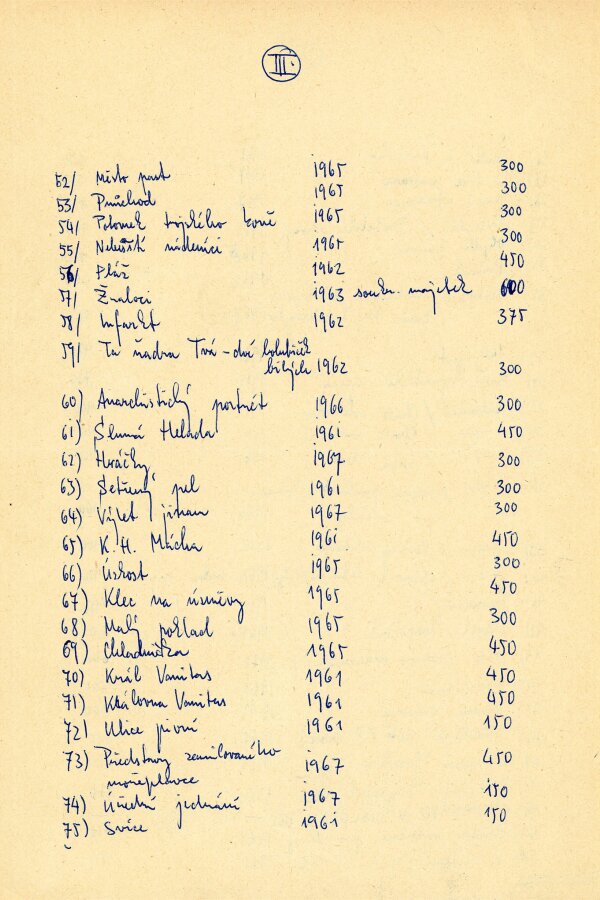 III.
52/ Místo past 1965 300
53/ Průchod 1965 300
54/ Potomek trojského koně 1965 300
55/ Neklištští nádeníci 1965 300
56/ Pláž 1962 450
57/ Žraloci 1963 soukr. majetek 600
58/ Infarkt 1962 375
59/ Ta ňadra Tvá - dvě holubiček
bílých 1962 300
60) Anarchistický portrét 1966 300
61) Šlumá Helada 1961 450
62) Hráčky 1967 300
63) Setřený pel 1961 300
64) Výlet jinam 1967 300
65) K. H. Mácha 1961 450
66) Úzkost 1965 300
67) Klec na úsměvy 1965 450
68) Malý poklad 1965 300
69) Chladnička 1965 450
70) Král Vanitas 1961 450
71) Královna Vanitas 1961 450
72) Ulice pivní 1961 150
73) Představy zamilovaného 1967 450
mořeplavce
74) Úřední jednání 1967 150
75) Svíce 1961 150